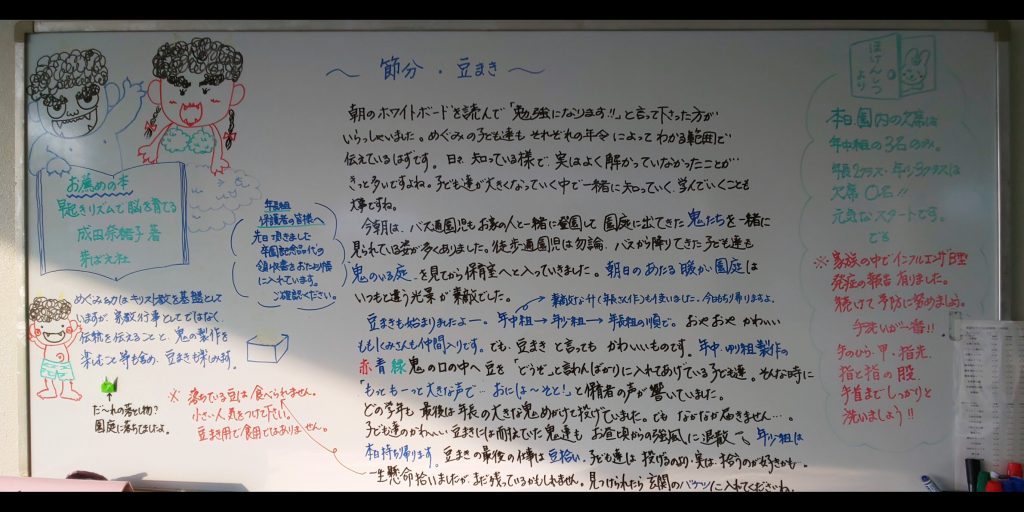 〜 節分・豆まき 〜
朝のホワイトボードを読んで「勉強になります!!」と言って下さった方が
いらっしゃいました。めぐみの子ども達も それぞれの年令によって わかる範囲で
伝えているはずです。日々 知っている様で、実はよく解かっていなかったことが…
きっと多いですよね。子ども達が大きくなっていく中で一緒に知っていく、学んでいくことも
大事ですね。
今朝は、バス通園児もお家の人と一緒に登園して 園庭に出てきた 鬼たちを一緒に
見られている姿が多くありました。徒歩通園児は勿論、バスから降りてきた 子ども達も
鬼のいる庭 を見てから保育室へと入っていきました。朝日のあたる 暖かい園庭は
いつもと違う光景が素敵でした。
豆まきも始まりましたよー。年中組→年少組→年長組の順で。おやおや かわいい
ももぐみさんも仲間入りです。でも、豆まき と言っても かわいいものです。年中・年少組 製作の
赤 青 緑 鬼の口の中へ 豆を「どうぞ。」と言わんばかりに入れてあげている子ども達。そんな時に
「もっともーっと大きな声で… おにはーそと!」と保育者の声が響いていました。
どの学年も 最後は年長の大きな鬼めがけて投げていました。でも なかなか届きません…。
子ども達のかわいい 豆まきには耐えていた鬼達も お昼頃からの強風に退散〜。年少組は
本日持ち帰ります。豆まきの最後の仕事は 豆拾い。子ども達は 投げるのより 実は、拾うのが好きかも…
一生懸命拾いましたが、まだ残っているかもしれません。見つけられたら 玄関のバケツに入れてくださいね。
お薦めの本
早起きリズムで脳を育てる
成田奈緒子 著
芽ばえ社
年長組
保護者の皆様へ
先日頂きました
卒園記念品代の
領収書をおたより帳
に入れています。
ご確認ください。
めぐみ幼はキリスト教を基盤として
いますが、宗教行事としてではなく、
伝統を伝えること、鬼の製作を
楽しむこと等も含め、豆まきも楽しみます。
だ〜れの落とし物?
園庭に落ちてましたよ。
※ 落ちている豆は 食べられません。
小さい人 気をつけて下さい。
豆まき用で食用ではありません。
ほけんしつ
より
本日、園内の欠席は
年中組の3名のみ。
年長2クラス・年少3クラスは
欠席 0名!!
元気なスタートです。
でも
※ 家族の中でインフルエンザB型
発症の報告 有りました。
続けて予防に努めましょう。
手洗いが一番!!
手のひら・甲・指先
指と指の股
手首まで しっかりと
洗いましょう!!